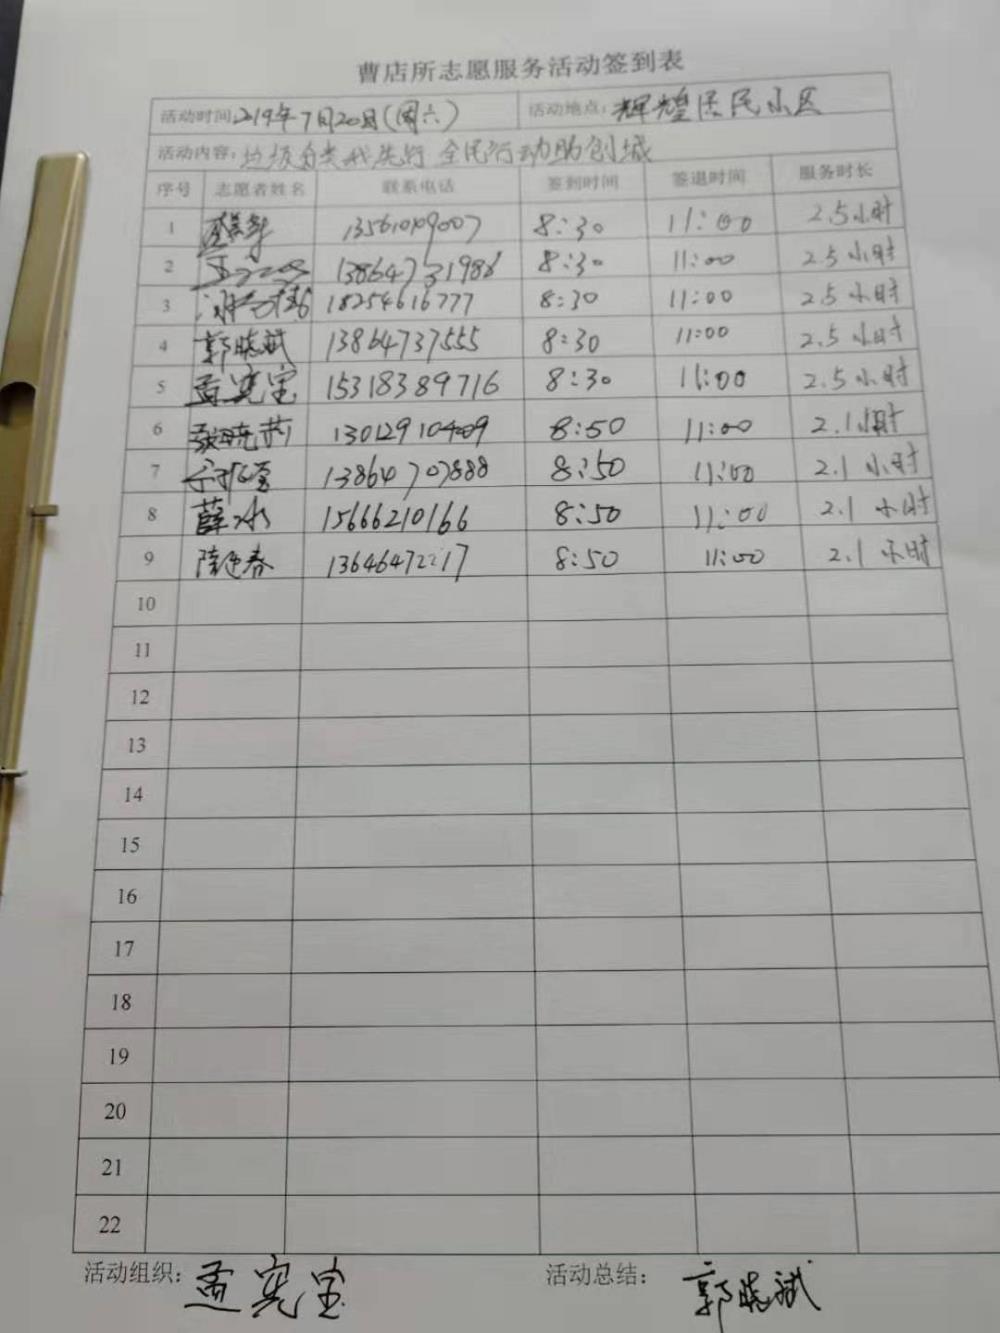 曹店所志愿服务活动签到表
活动时间 2019年7月20日(周六) 活动地点: 辉煌居民小区
活动内容: 垃圾分类我先行 全民行动助创城
序号 志愿者姓名 联系电话 签到时间 签退时间 服务时长
1 13561019007 8:30 11:00 2.5小时
2 13864731986 8:30 11:00 2.5小时
3 18254616777 8:30 11:00 2.5小时
4 郭晓斌 13864737555 8:30 11:00 2.5小时
5 孟宪宝 15318389716 8:30 11:00 2.5小时
6 张晓莉 13012910409 8:50 11:00 2.1小时
7 13864707888 8:50 11:00 2.1小时
8 薛冰 15666210166 8:50 11:00 2.1小时
9 隋迎春 13646472217 8:50 11:00 2.1小时
10
11
12
13
14
15
16
17
18
19
20
21
22
活动组织: 孟宪宝 活动总结: 郭晓斌